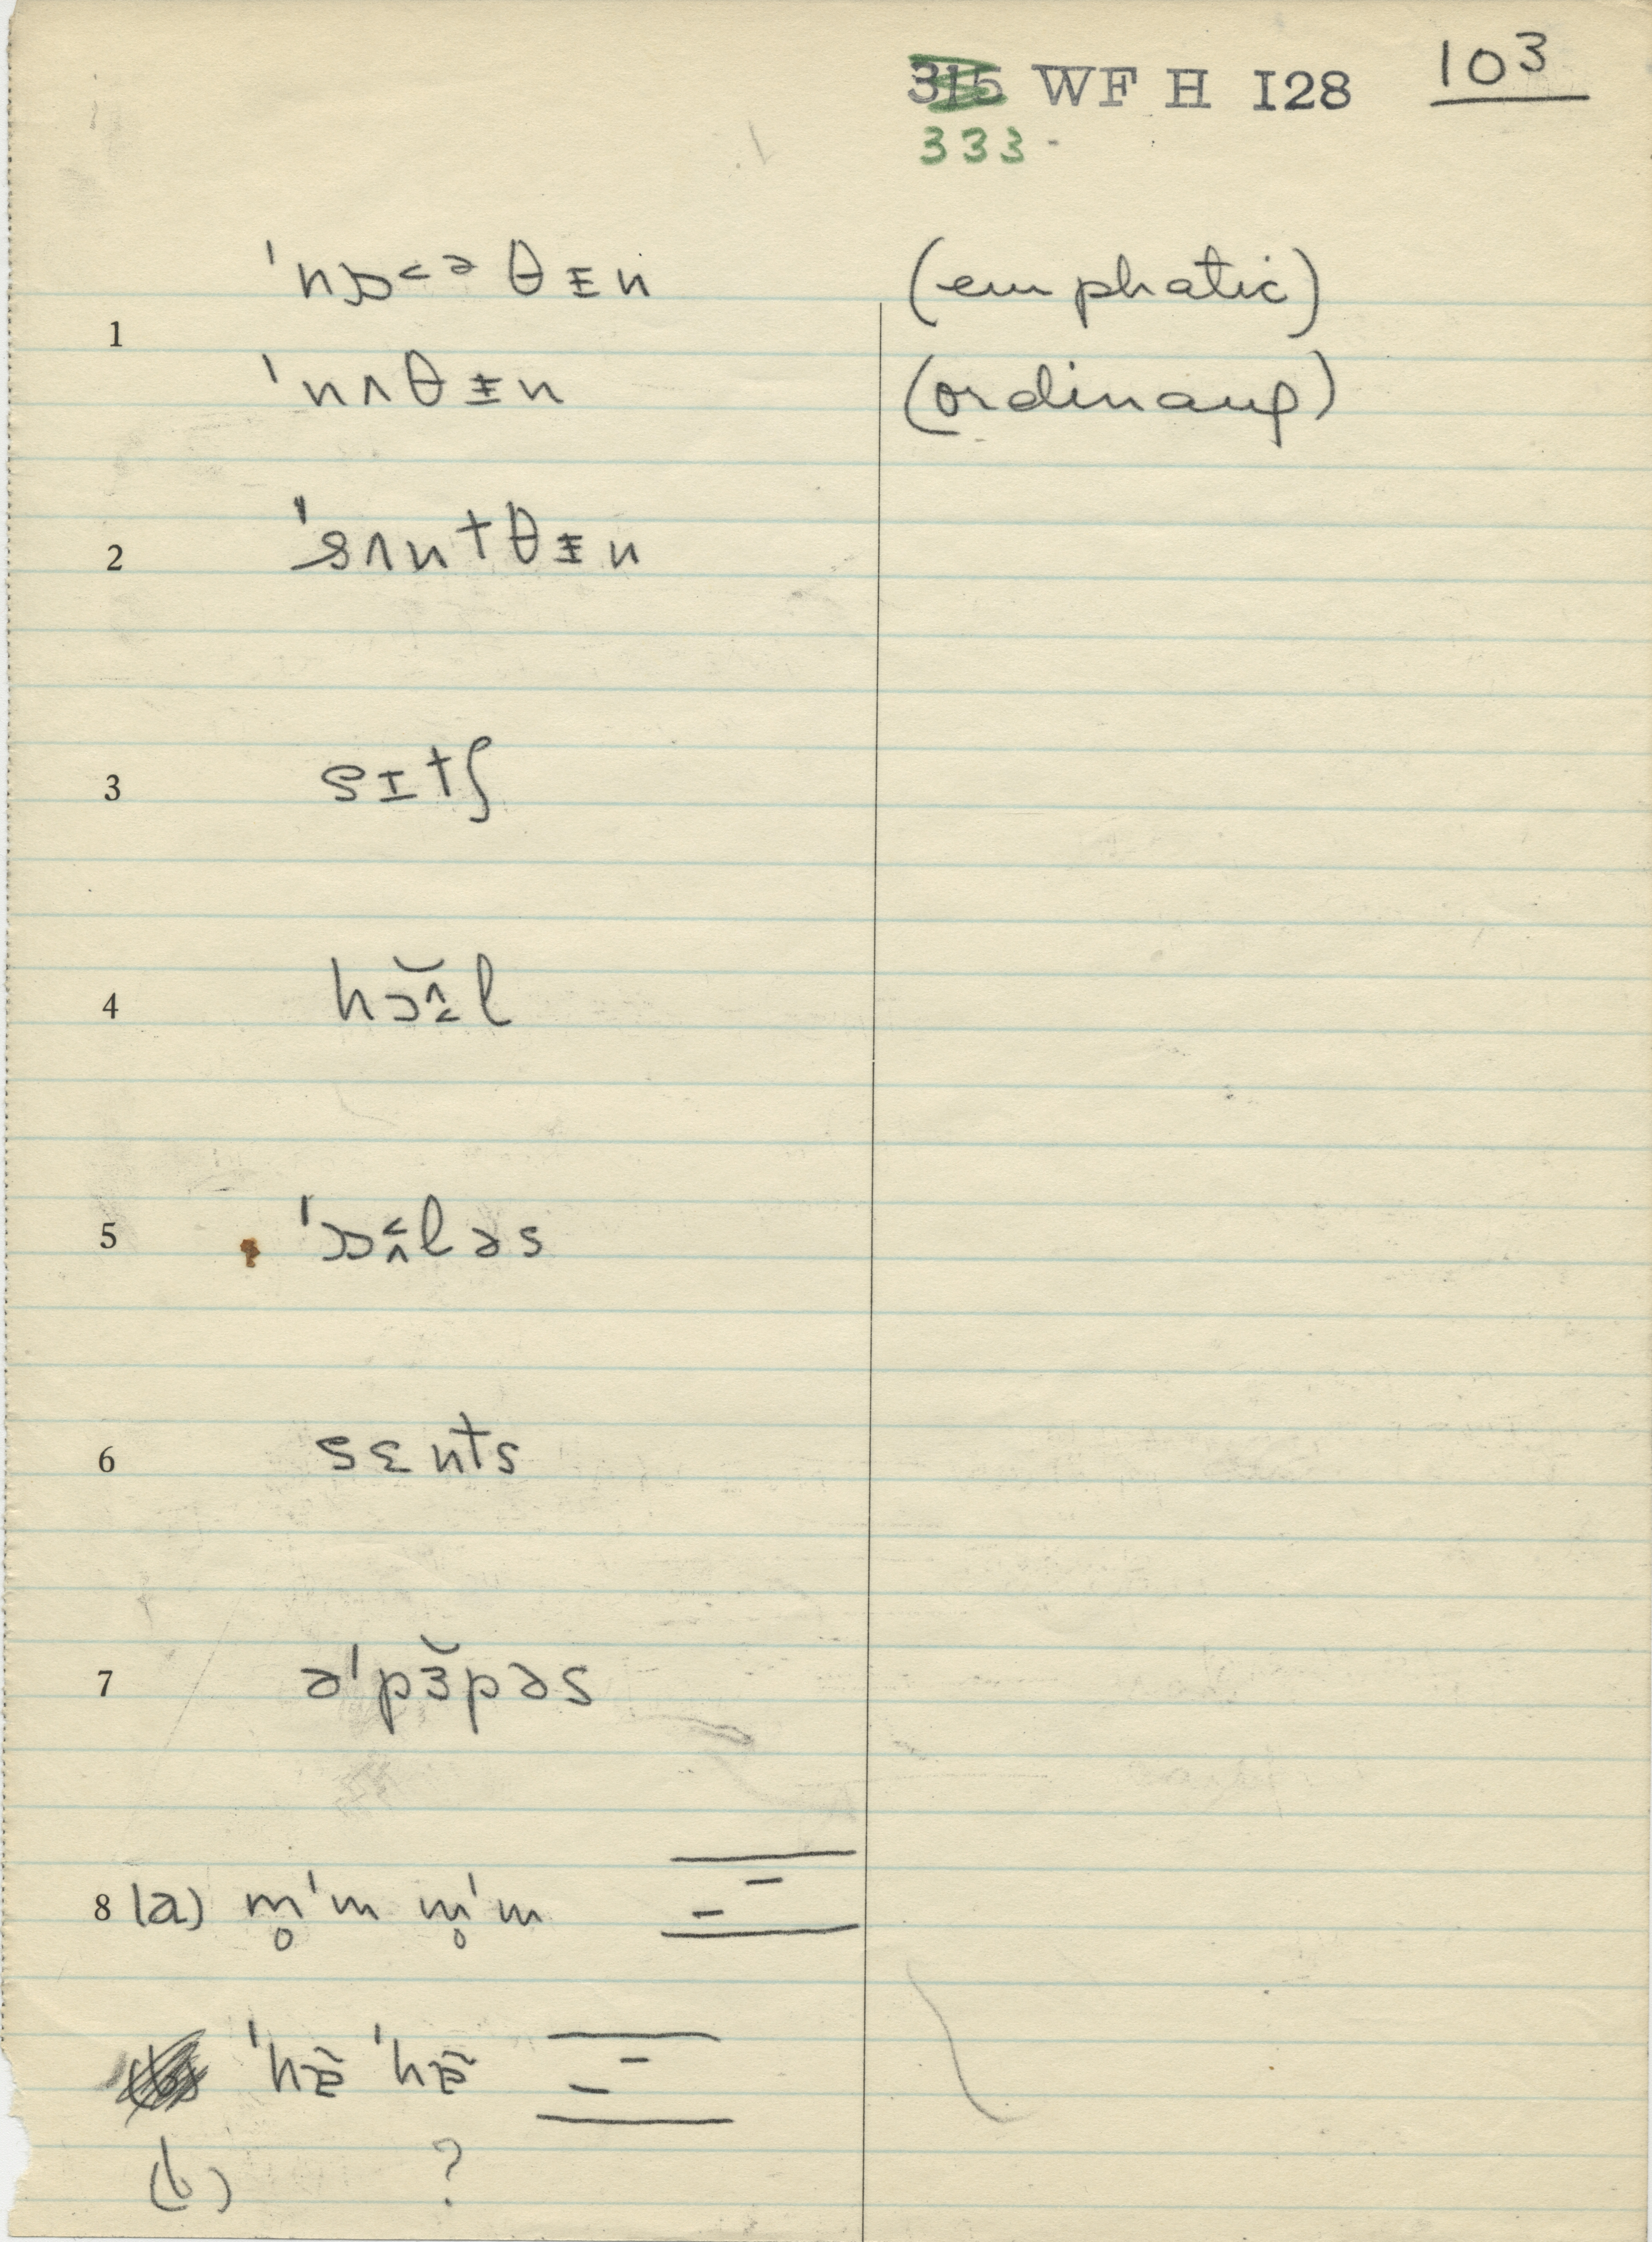 315 WF H I28 103
333
1 ˈnɒ˂ᵊθɪ̵n (emphatic)
ˈnʌθɪ̵n (ordinary)
2 ˈsʌntθɪ̵n
3 sɪtʃ
4 hɔ̆l
5 ˈɒləs
6 sɛnts
7 əˈpɜ̆pəs
8 (a) m̥ˈm m̥ˈm
ˈhɛ̃ ˈhɛ̃
(b) ?